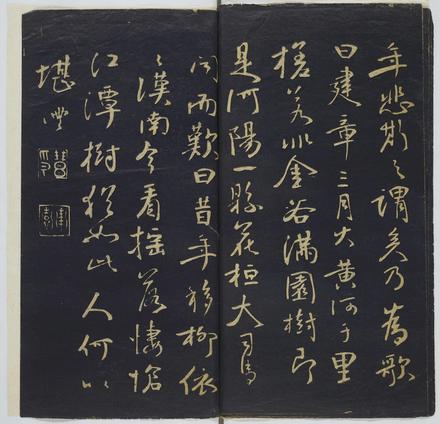 年悲斯之謂矣乃為歌
曰建章三月火黃河千里
槎若非金谷滿園樹即
是河陽一縣花桓大司馬
聞而歎曰昔年移柳依
〻漢南今看搖落悽愴
江潭樹猶如此人何以
堪